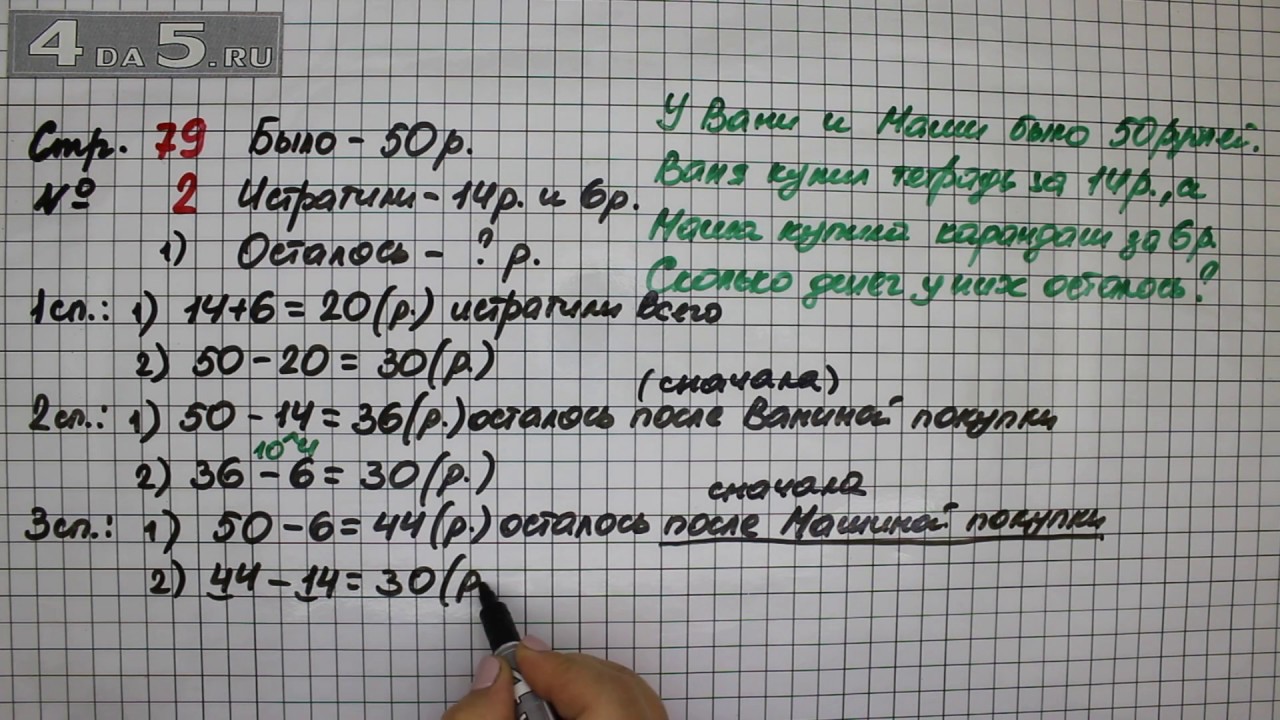 4 DA 5.RU
Стр. 79 Было - 50 р.
№ 2 Истратили - 14р. и 6р.
1) Осталось - ? р.
У Вани и Маши было 50 рублей.
Ваня купил тетрадь за 14р., а
Маша купила карандаш за 6р.
Сколько денег у них осталось?
1сп.: 1) 14+6 = 20(р.) истратили всего
2) 50 - 20 = 30(р.)
(сначала)
2сп.: 1) 50 - 14 = 36(р.) осталось после Ваниной покупки
10 4
2) 36 - 6 = 30(р.)
сначала
3сп.: 1) 50 - 6 = 44(р.) осталось после Машиной покупки
2) 44 - 14 = 30(р.